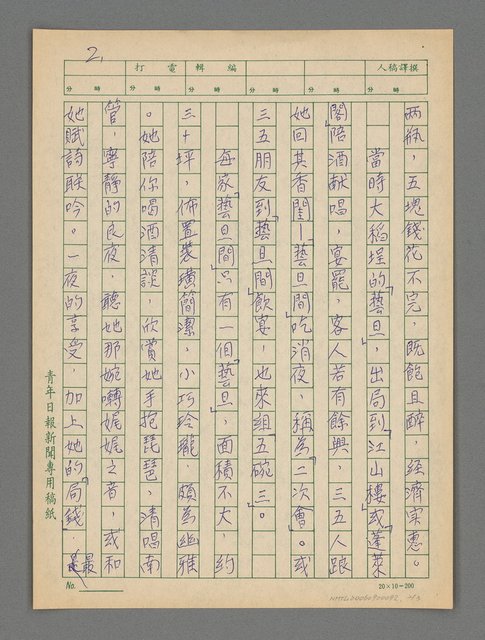 2.
撰譯稿人
編輯
電打
時 分 時 分 時 分 時 分
兩瓶，五塊錢花不完，既飽且醉，經濟实惠。
當時大稻埕的「藝旦」，出局到「江山樓」或「蓬萊
閣」陪酒献唱，宴罷，客人若有餘興，三五人跟
她回其香閨—「藝旦間」吃消夜，稱為「二次會」。或
三五朋友到「藝旦間」飲宴，也來組「五碗三」。
每家「藝旦間」只有一個「藝旦」，面積不大，約
三十坪，佈置裝璜簡潔，小巧玲瓏，頗為幽雅
。她陪你喝酒清談，欣賞她手抱琵琶，清唱南
管，寧靜的良夜，聽她那婉囀娓娓之音，或和
她賦詩联吟。一夜的享受，加上她的「局錢」，最
青年日報新聞專用稿紙
No.
20×10=200